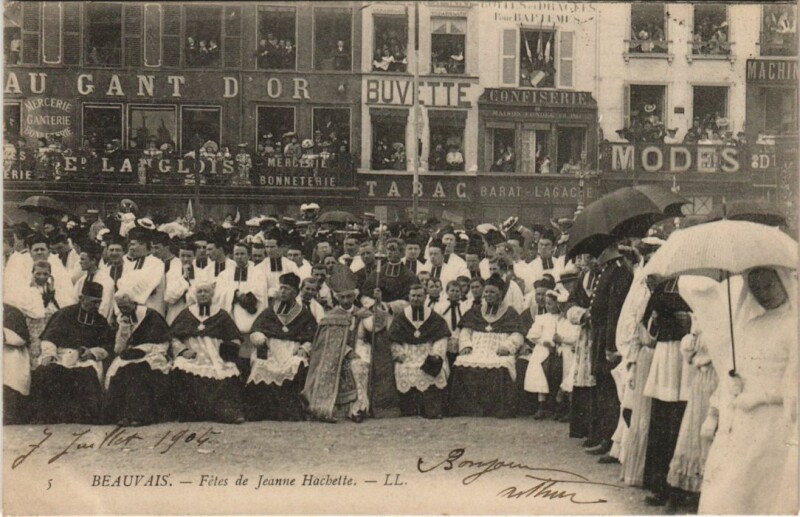 BOITES ET DRAGÉES
Pour BAPTÊMES
AU GANT D'OR
MERCERIE
GANTERIE
BONNETERIE
BUVETTE
CONFISERIE
MACHIN
LANGLOIS
MERCERIE
BONNETERIE
TABAC
BARAT-LAGACHE
MODES
7 Juillet 1904
5 BEAUVAIS. — Fêtes de Jeanne Hachette. — LL.
Bonjour
Arthur